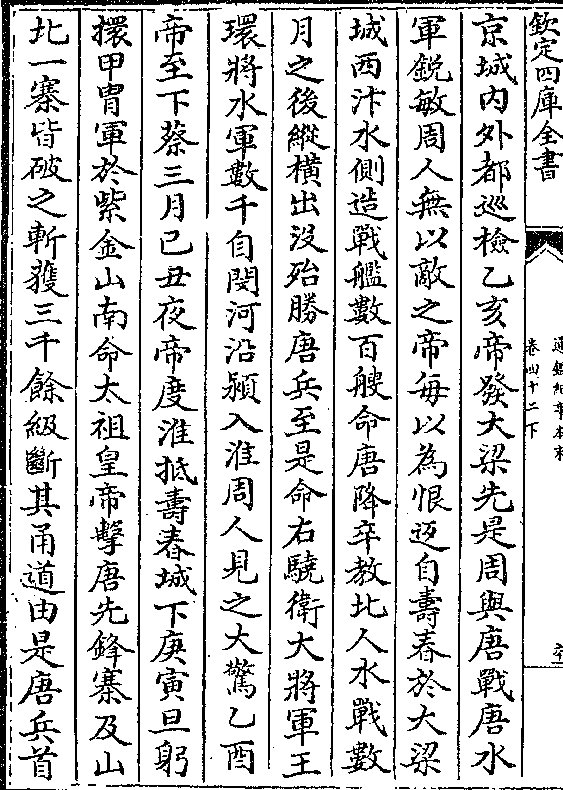 欽定四庫全書
通鑑紀事本末
卷四十二下
京城內外都巡檢乙亥帝發大梁先是周與唐戰唐水
軍銳敏周人無以敵之帝每以為恨返自壽春於大梁
城西汴水側造戰艦數百艘命唐降卒教北人水戰數
月之後縱橫出没殆勝唐兵至是命右驍衛大將軍王
環將水軍數千自閔河沿潁入淮周人見之大驚乙酉
帝至下蔡三月己丑夜帝度淮抵壽春城下庚寅旦躬
擐甲胄軍於紫金山南命太祖皇帝擊唐先鋒寨及山
北一寨皆破之斬獲三千餘級斷其甬道由是唐兵首